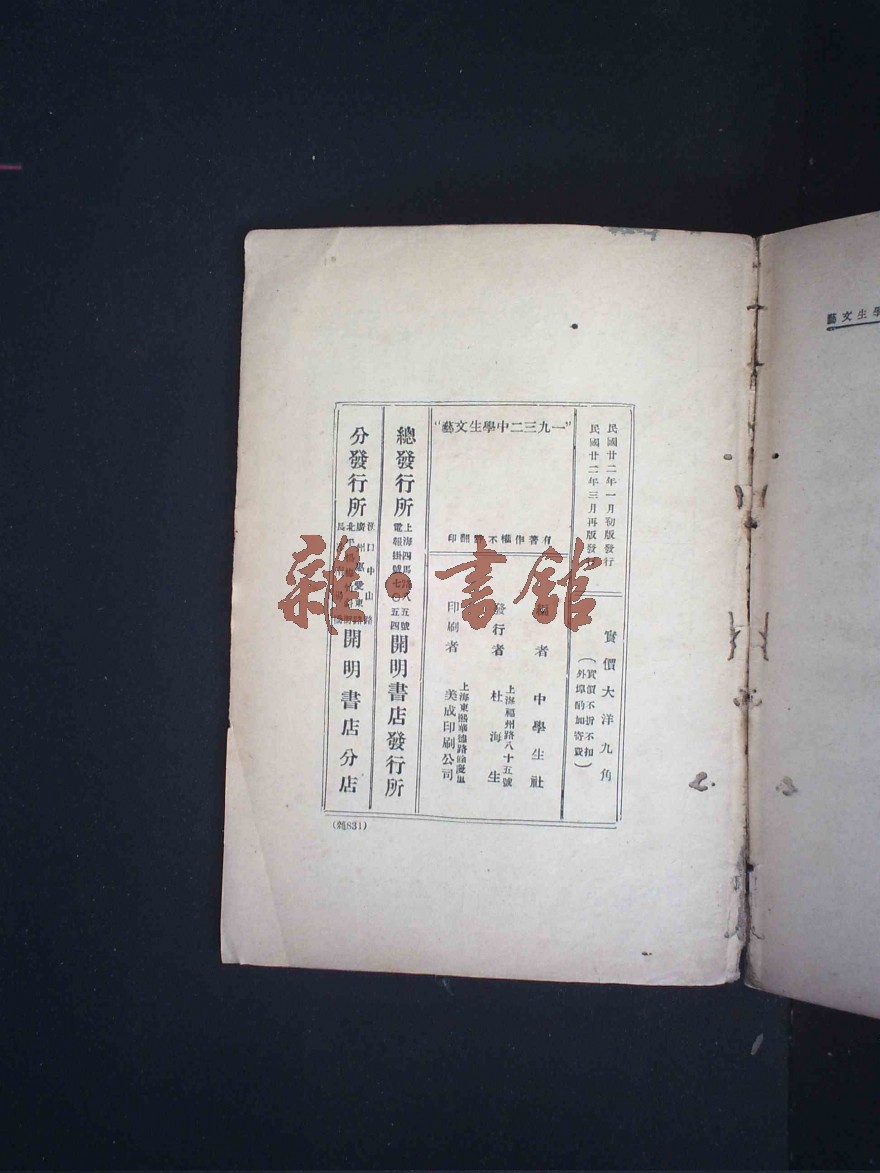 民國廿二年一月初版發行
民國廿二年三月再版發行
實價大洋九角
（實價不折不扣
外埠酌加寄費）
“一九三二中學生文藝”
有著作權不許翻印
編者 中學生社
發行者 杜海生
上海福州路八十五號
印刷者 美成印刷公司
上海東熙華德路
總發行所 開明書店發行所
上海四馬路八五號
電報掛號七〇五四
分發行所 開明書店分店
漢口中山路
廣州惠愛東路
北平
長沙
(類831)
學生文藝
雜·書館